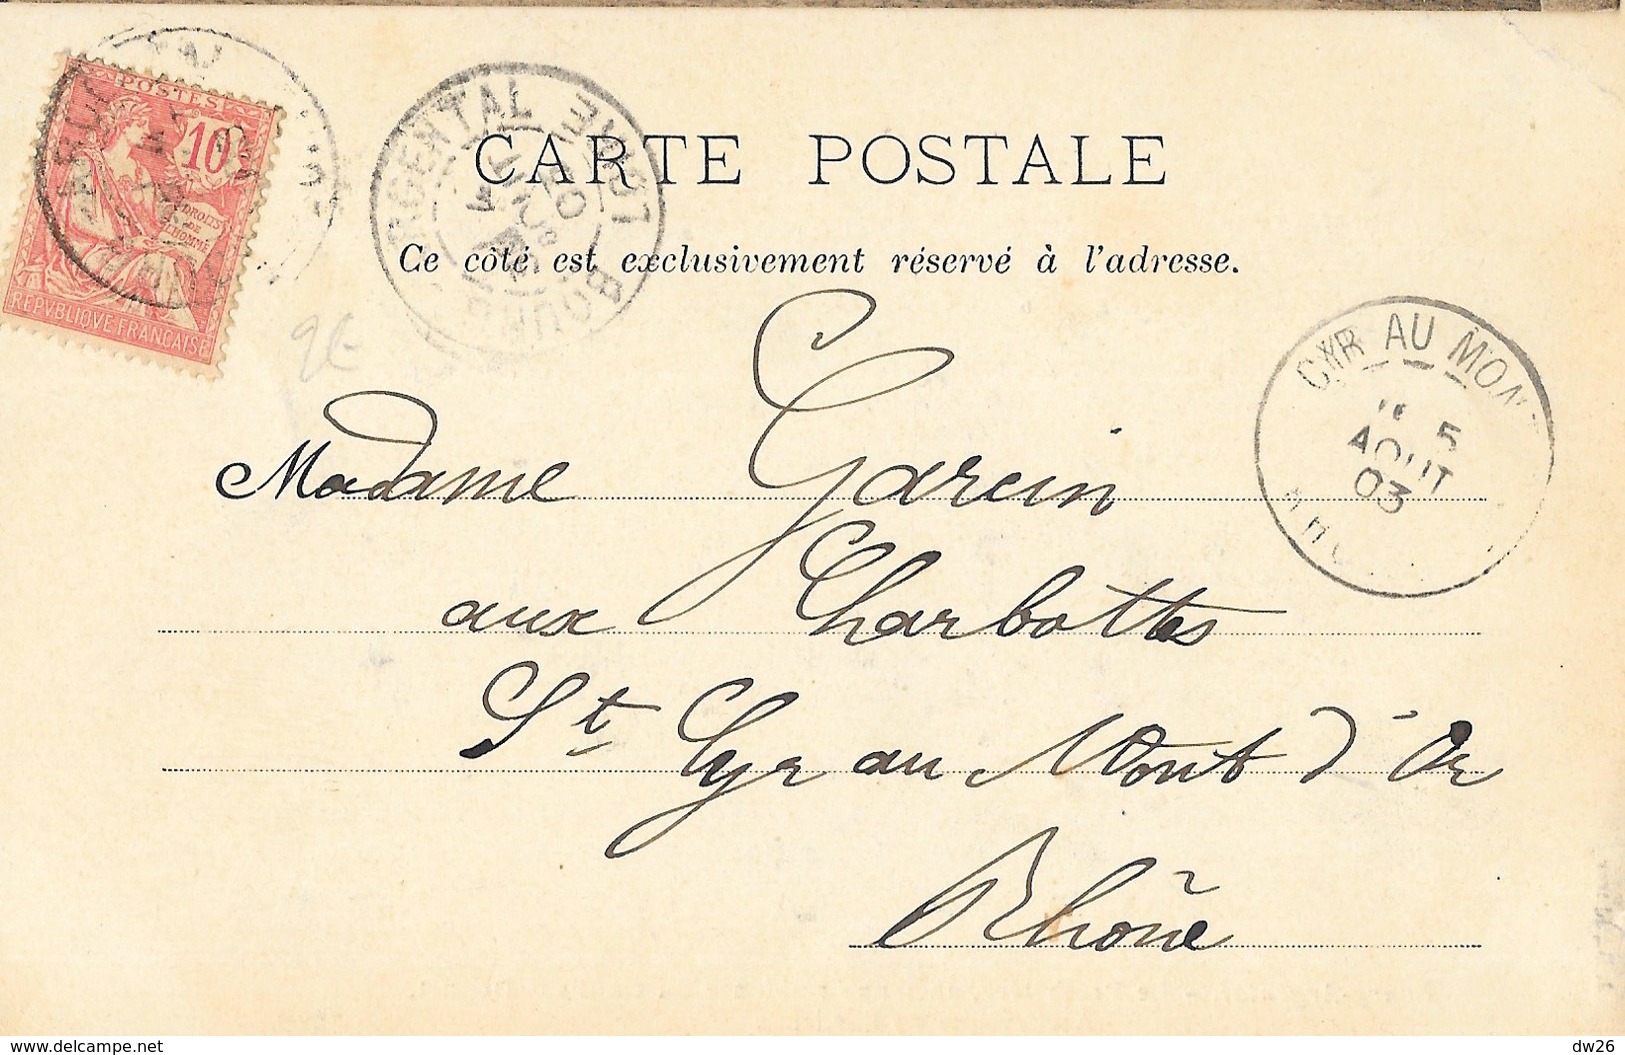 POSTES
10
DROITS
DE
L'HOMME
REPVBLIQVE FRANÇAISE
2€
CARTE POSTALE
Ce côté est exclusivement réservé à l'adresse.
CYR AU MON
5
AOUT
03
Madame Garcin
aux Charbottes
St Cyr au Mont d'Or
Rhône
www.delcampe.net
dw26